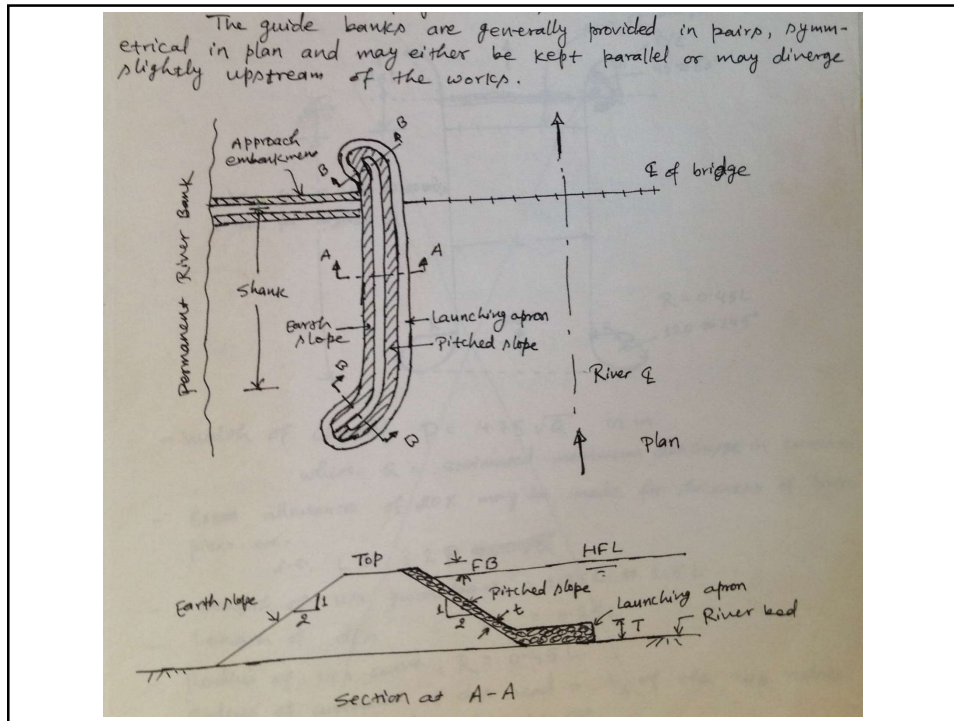 The guide banks are generally provided in pairs, symm-
etrical in plan and may either be kept parallel or may diverge
slightly upstream of the works.
Approach
embankment
B
B
℄ of bridge
Permanent River Bank
A
A
Shank
Earth
slope
Launching apron
Pitched slope
B
B
River ℄
Plan
Top
FB
HFL
Earth slope
1
2
Pitched slope
1
2
t
Launching apron
T
River bed
Section at A-A
R = 0.45L